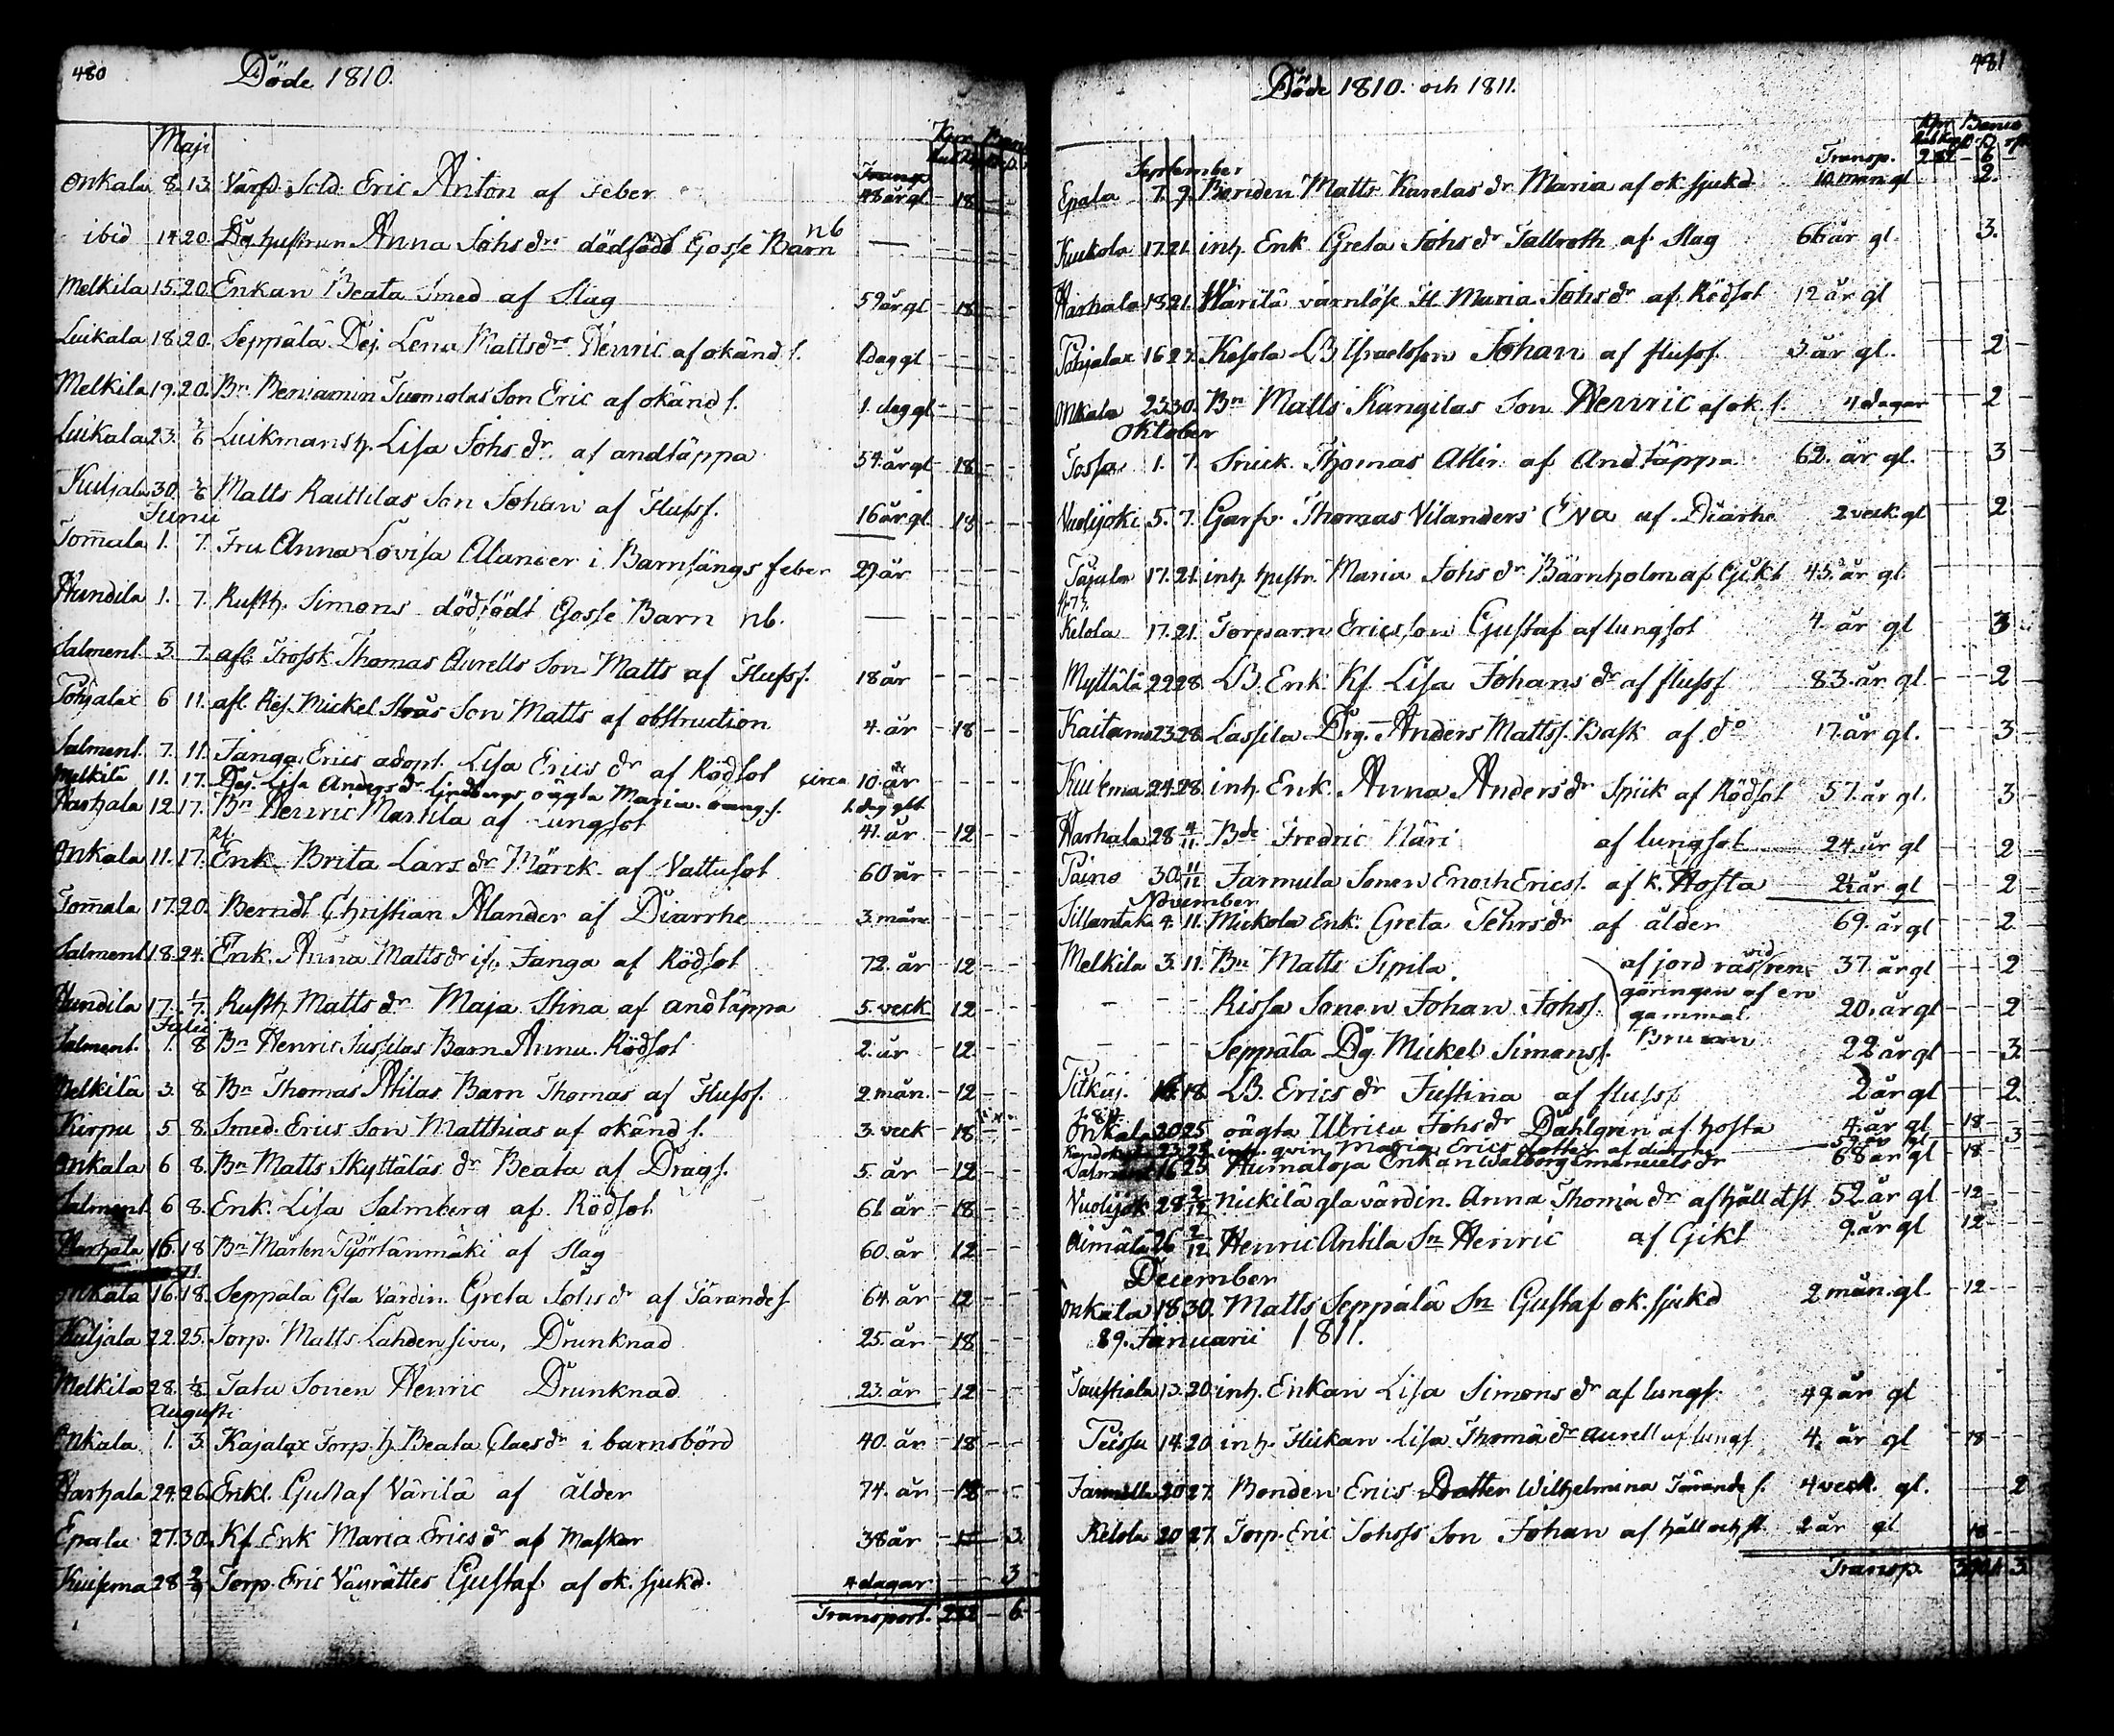 480
Döde 1810.
Maji
Onkala 8. 13. Värfd. Sold. Eric Anton af feber 48 år gl 18
ibid 14 20. Dg hustrun Anna Johs drs dödfödt Gosse Barn nb —
Melkila 15. 20. Enkan Beata Smed af Slag 59 år gl 18
Luikala 18. 20. Seppälä Dej. Lena Matts drs Henric af okänd s. 1 dag gl
Melkila 19. 20. Bn Beniamin Tuomolas Son Eric af okänd s. 1. dag gl
Luikala 23. 3/6 Luikmansh. Lisa Johs dr. af andtäppa 54. år gl 18
Kuljala 30. 3/6 Matts Raittilas Son Johan af Flufsf. 16 år gl 18
Junii
Tom̄ala 1. 7. Fru Anna Lovisa Alander i Barnsängs feber 29 år
Hundila 1. 7. Rusth. Simons dödfödt Gosse Barn nb. —
Salment. 3. 7. afl. Trossk. Thomas Aurells Son Matts af Flufsf. 18 år
Pohjalax 6 11. afl. Res. Mickel Strås Son Matts af obstruction 4. år 18
Salment. 7. 11. Janga Erics adopt. Lisa Erics dr af Rödsot circa 10. år
Melkila 11. 17. Dej. Lisa Anders dr Lindbergs oägta Maria 1. dag glt
Harhala 12. 17. Bn Henric Marttila af Lungsot 41. år 12
Onkala 11. 17. Enk. Brita Lars dr Mörck af Vattusot 60 år
Tom̄ala 17. 20. Berndt Christian Alander af Diarrhe 3. mån.
Salment 18. 24. Enk. Anna Matts dr Janga af Rödsot 72. år 12
Hundila 17. 1/7. Rusth. Matts dr Maja Stina af andtäppa 5. veck 12
Julii
Salment. 1. 8 Bn Henric Jussilas Barn Anna. Rödsot 2. år 12
Melkila 3. 8 Bn Thomas Atilas Barn Thomas af Flufsf. 2. mån. 12
Kirpu 5 8. Smed. Erics Son Matthias af okänd s. 3. veck 18
Onkala 6 8. Bn Matts Skyttäläs dr Beata af Dragf. 5. år 12
Salment 6 8. Enk. Lisa Salmberg af Rödsot 66 år 18
Harhala 16. 18 Bn Mårten Pyörtänmäki af Slag 60. år 12
Onkala 16. 18. Seppälä Gla Värdin. Greta Johs dr af Tärande s. 64. år 12
Kuljala 22. 25. Torp. Matts Lahdensivu, Drunknad 25. år 18
Melkila 28. 1/8. Tatu Sonen Henric Drunknad 23. år 12
Augusti
Onkala 1. 3. Kajalax Torp. h. Beata Claes dr i barnsbörd 40. år 18
Harhala 24. 26. Enkl. Gustaf Värilä af ålder 74. år 18
Epala 27. 30. Kf Enk Maria Erics dr af Maskar 38 år 3.
Kuisema 28 2/9 Torp. Eric Väyrättes Gustaf af ok. sjukd. 4 dagar 3
Transport. 282 — 6.
481
Döde 1810. och 1811.
Transp. 282 — 6
September
Epala 7. 9. Bonden Matts Karelas dr Maria af ok sjukd 10. mån. gl 2.
Kuckola 17. 21. inh. Enk Greta Johs dr Tallroth af Slag 66 år gl. 3.
Harhala 18 21. Wärilä värnlöse fl. Maria Johs dr af Rödsot 12 år gl
Pohjalax 16 23. Kesola LB Israelsson Johan af flufsf. 3. år gl. 2
Onkala 25 30. Bn Matts Kangilas Son Henric af ok. s. 4 dagar 2
Oktober
Tossa 1. 7. Snick. Thomas Atlin af Andtäppa 62. år gl. 3
Vuolijoki 5. 7. Garfv. Thomas Vilanders Eva af Diarhe 2 veck. gl 2
17. 21. inh. hustr. Maria Johs dr Bärnholm af Gikt 45. år gl.
Kelola 17. 21. Torparn Ericsson Gustaf af lungsot 4. år gl 3
Myttälä 22 28. LB. Enk. Kf. Lisa Johans dr af flufsf 83. år gl 2
Kaitamo 23 28. Lassila Drg. Anders Mattss. Bask af do 17. år gl. 3
Kuisema 24 28. inh. Enk. Anna Anders dr Spiik af Rödsot 57. år gl. 3
Harhala 28 4/11 Bde Fredric Näri af lungsot 24. år gl 2
Paino 30 11/11 Jarmula Sonen Enoch Ericss. af k. Hosta 2½ år gl 2
November
Sillantaka 4. 11. Mickola Enk. Greta Pehrs dr af ålder 69. år gl 2.
Melkila 3. 11. Bn Matts Sipila. af jord ras vid ren 37. år gl 2
– – – Rissa Sonen Johan Johss. göringen af en gammal 20. år gl 2
– – – Seppälä Dg. Mickel Simonss. Brunn 22 år gl 3.
Titkuj. 18. LB. Erics dr Justina af flufsf. 2 år gl 2.
Onkala 20 25. oägta Ulrica Johs dr Dahlgren af hosta 4. år gl 18
23 25 inh. qvin. Maria Erics dotter af diarrhe 18 3
Salment 16 25. Humaloja Enkan Walborg Emanuels dr 68 år gl
Vuolijok 28 2/12 Nickilä gla värdin. Anna Thomä dr af håll o st 52 år gl 12
Äimälä 26 2/12. Henric Antila Sn Henric af Gikt 9. år gl 12
December
Onkala 18 30. Matts Seppälä Sn Gustaf ok. sjukd 2 mån. gl. 12
89. Januarii 1811.
Taustiala 13. 20 inh. Enkan Lisa Simons dr af lungs. 49 år gl
Peissu 14. 20. inh. Flickan Lisa Thomä dr Aurell af lungs. 4. år gl 18
20 27. Bonden Erics Dotter Wilhelmina Tärande s. 4 veck. gl. 2
Kelola 20 27. Torp. Eric Johsss Son Johan af håll och st. 2 år gl 18
Transp.